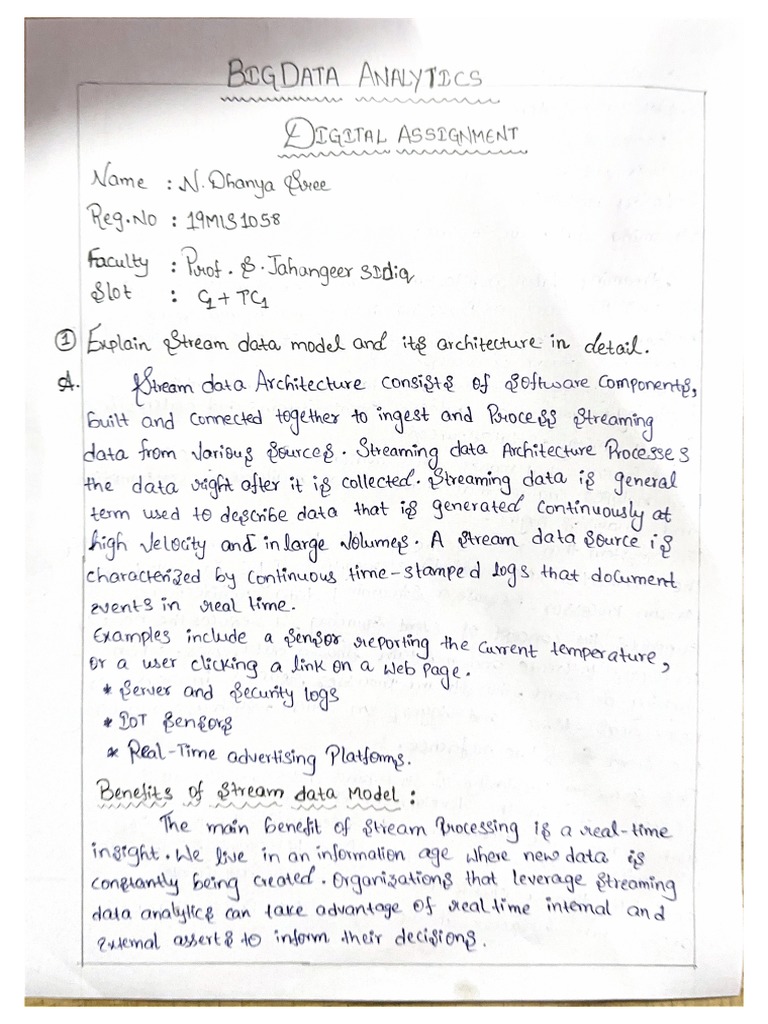 BIGDATA ANALYTICS
DIGITAL ASSIGNMENT
Name : N. Dhanya Sree
Reg.No : 19MIS1058
Faculty : Prof. S. Jahangeer SIdiq
Slot : G1 + TG1
① Explain Stream data model and its architecture in detail.
A. Stream data Architecture consists of software components,
built and connected together to ingest and Process streaming
data from various sources. Streaming data Architecture Processes
the data right after it is collected. Streaming data is general
term used to describe data that is generated continuously at
high velocity and in large volumes. A stream data source is
characterized by continuous time-stamped logs that document
events in real time.
Examples include a sensor reporting the current temperature,
or a user clicking a link on a web page.
* Server and Security logs
* IoT Sensors
* Real-Time advertising Platforms.
Benefits of Stream data Model :
The main benefit of stream Processing is a real-time
insight. We live in an information age where new data is
constantly being created. Organizations that leverage streaming
data analytics can take advantage of real time internal and
external asserts to inform their decisions.